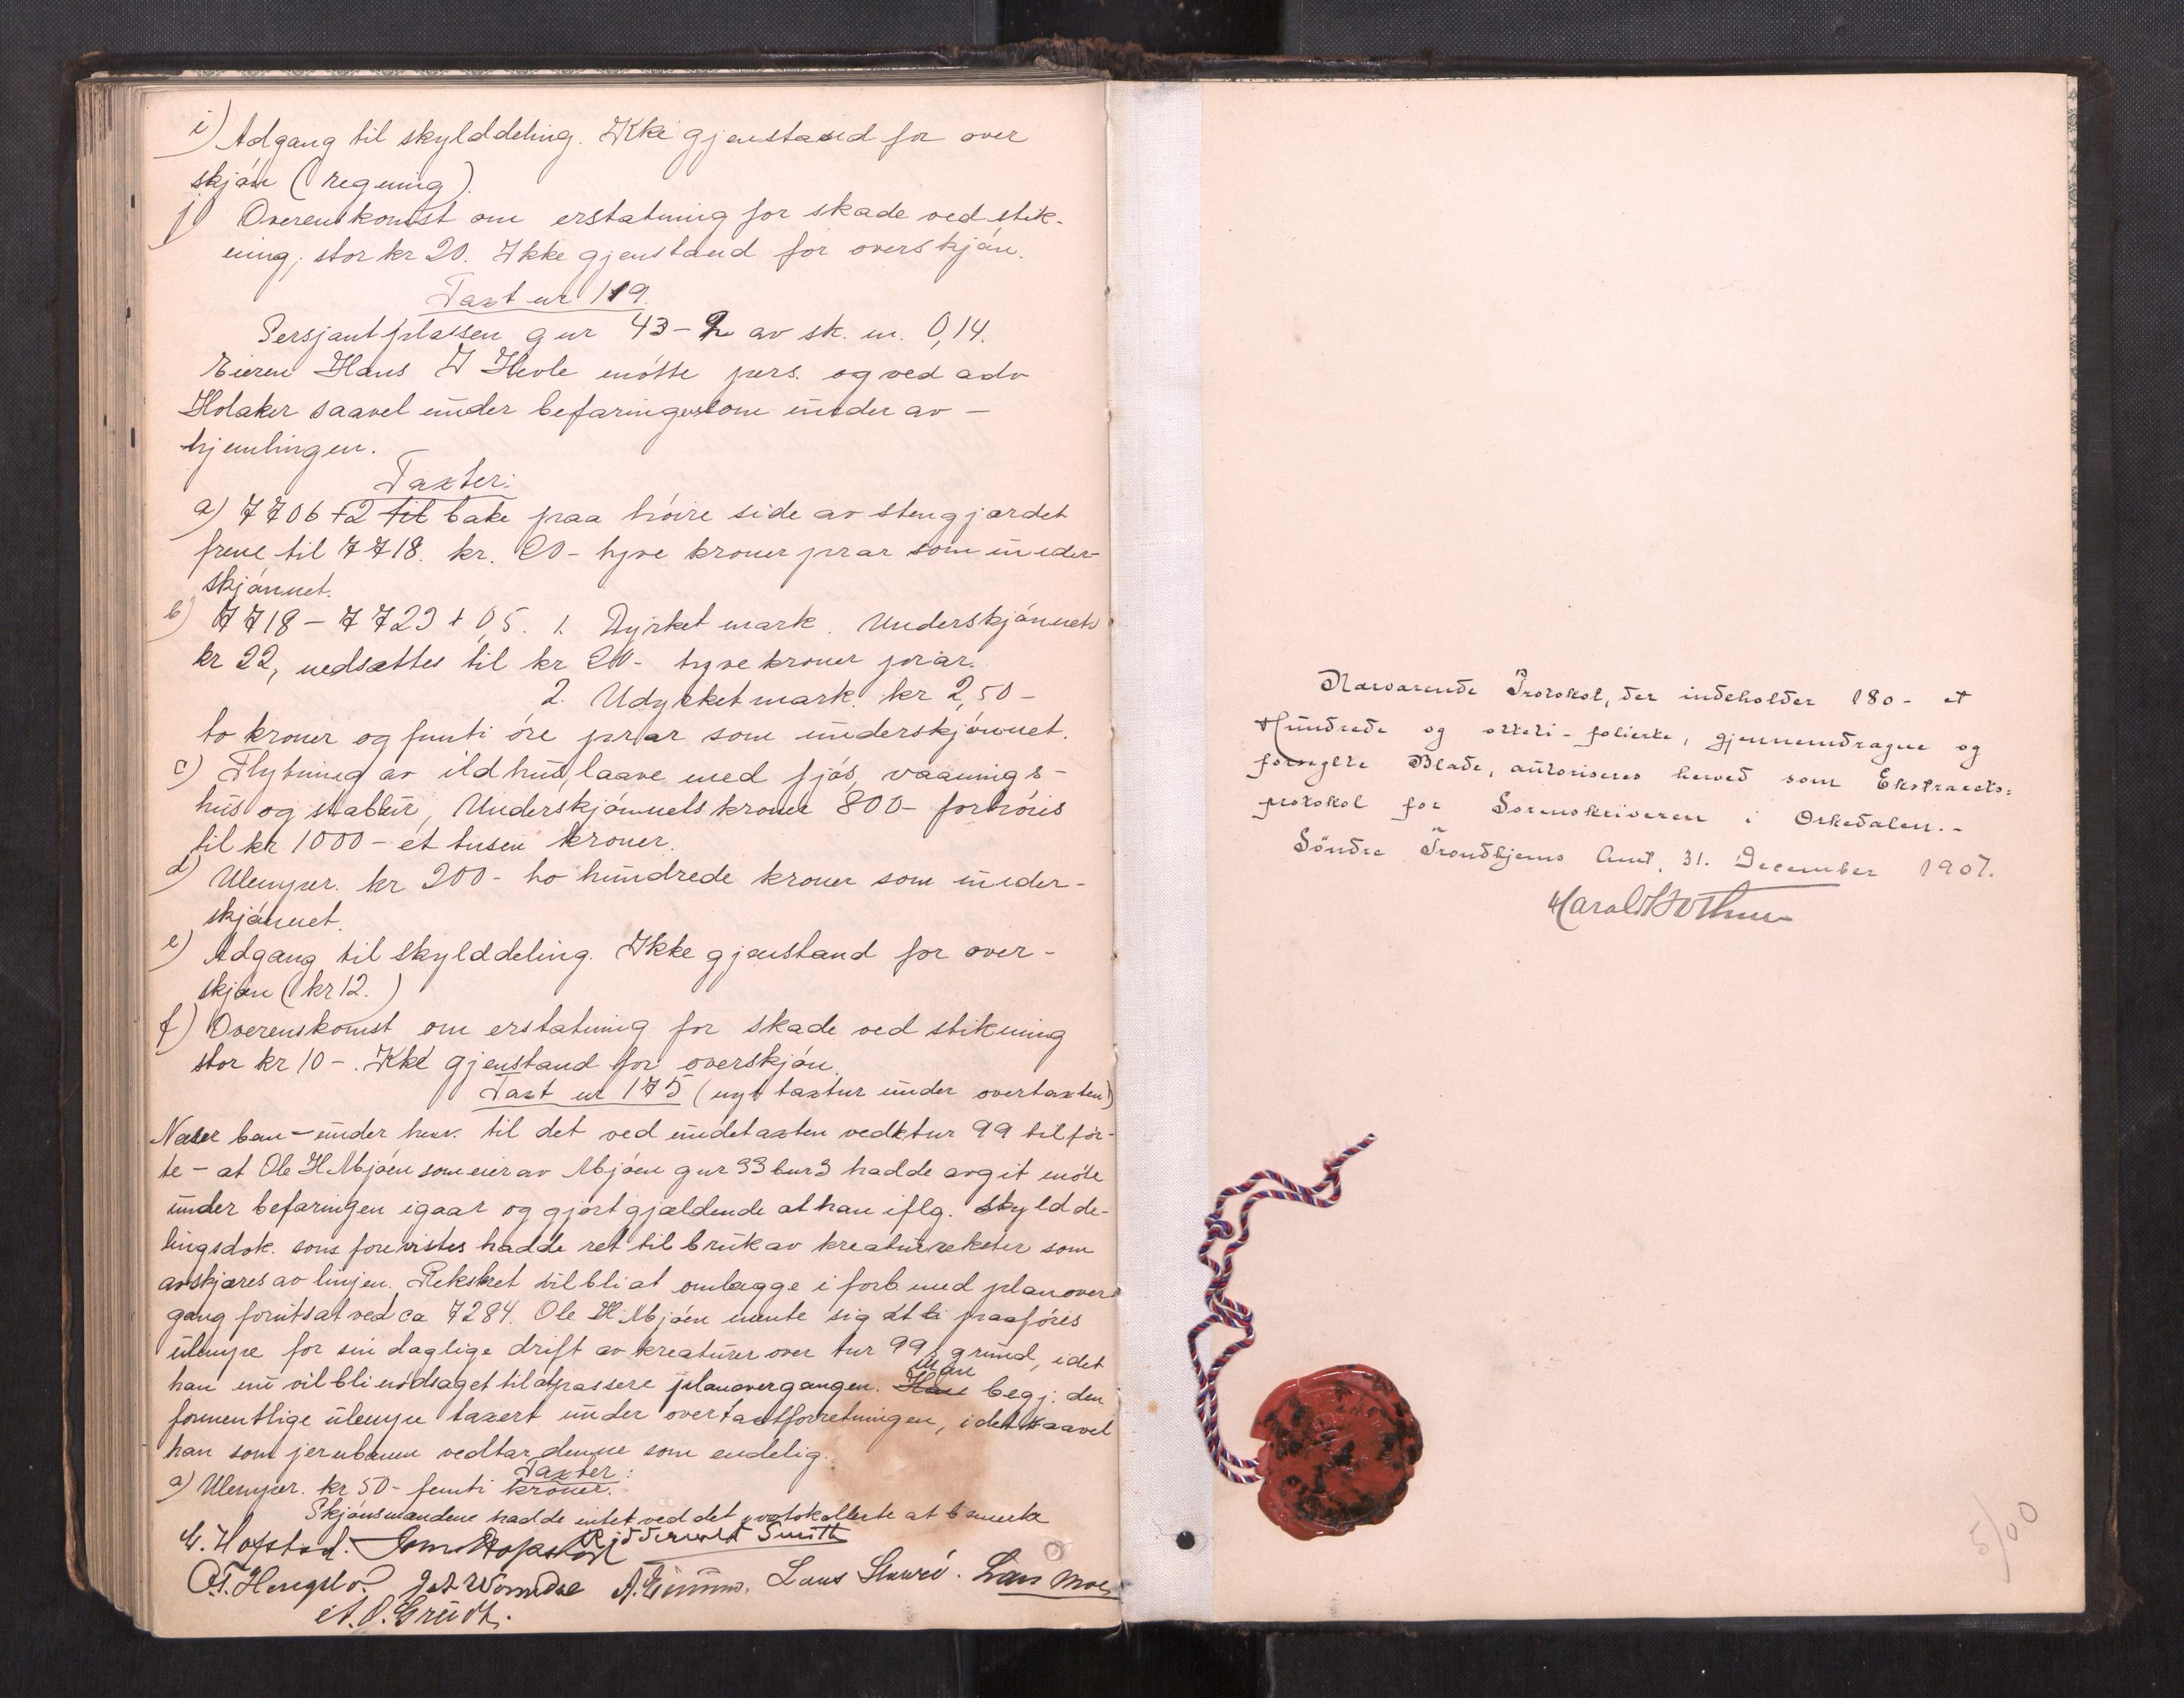 i) Adgang til skylddeling. Ikke gjenstand for over
skjøn (regning).
j) Overenskomst om erstatning for skade ved stik-
ning, stor kr 20. Ikke gjenstand for overskjøn.
Taxt nr 119.
Sersjantplassen gnr 43-2 av sk. m. 0,14.
Eieren Hans J Hevle møtte pers. og ved adv
Holaker saavel under befaringen som under av-
hjemlingen.
Taxter:
a) 7706+2 til bake paa høire side av stengjærdet
frem til 7718. kr. 20- tyve kroner prar som under-
skjønnet.
b) 7718-7723+0,5. 1. Dyrket mark. Underskjønnets
kr 22, nedsættes til kr 20- tyve kroner prar.
2. Udyrket mark. kr 2,50-
to kroner og femti øre prar som underskjønnet.
c) Flytning av ildhus, laave med fjøs, vaanings-
hus og stabur, Underskjønnets kroner 800- forhøies
til kr 1000- et tusen kroner.
d) Ulemper. kr 200- to hundrede kroner som under-
skjønnet.
e) Adgang til skylddeling. Ikke gjenstand for over-
skjøn (kr 12.)
f) Overenskomst om erstatning for skade ved stikning
stor kr 10-. Ikke gjenstand for overskjøn.
Taxt nr 175 (nyt taxtnr under overtaxten)
under henv. til det ved undetaxten ved tnr 99 tilfør-
te - at Ole H Mjøen som eier av Mjøen gnr 33 bnr 3 hadde avgit møte
under befaringen igaar og gjort gjældende at han iflg. skyldde-
lingsdok. som forevistes hadde ret til bruk av kreaturrekster som
avskjæres av linjen. Rekstret vil bli at omlægge i forb med planover-
gang forutsat ved ca 7284. Ole H. Mjøen mente sig at bli paaføres
ulempe for sin daglige drift av kreaturer over tnr 99s grund, idet
han nu vil bli nødsaget til at passere planovergangen. Han man begj. den
formentlige ulempe taxert under overtaxtforretningen, idet saavel
han som jernbanen vedtar denne som endelig.
Taxter:
a) Ulemper. kr 50- femti kroner.
Skjønsmændene hadde intet ved det protokollerte at bemerke
E. Hofstad. Riddervold Smith
O.T. Hengslo. Lars Moe
A.O. Grudt.
Nærværende Protokol, der indeholder 180- et
Hundrede og otteti- folierte, gjennemdragne og
forseglte Blade, autoriseres herved som Ekstrarets-
protokol for Sorenskriveren i Orkedalen.-
Søndre Trondhjems Amt, 31. December 1907.
Harald Bothner
5/00